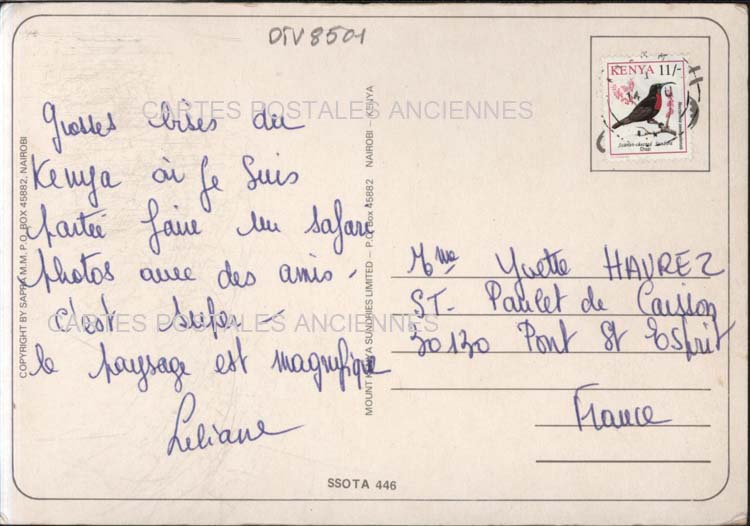 DIV8501
KENYA 11/-
CARTES POSTALES ANCIENNES
Grosses bises du
Kenya où je suis
partie faire un safari
photos avec des amis -
c'est super -
le paysage est magnifique
Liliane
Mme Yvette HAVREZ
ST- Paulet de Caisson
30130 Pont St Esprit
France
CARTES POSTALES ANCIENNES
COPYRIGHT BY SAPRA M.M. P.O. BOX 45882, NAIROBI
MOUNT KENYA SUNDRIES LIMITED — P.O. Box 45882 NAIROBI — KENYA
SSOTA 446